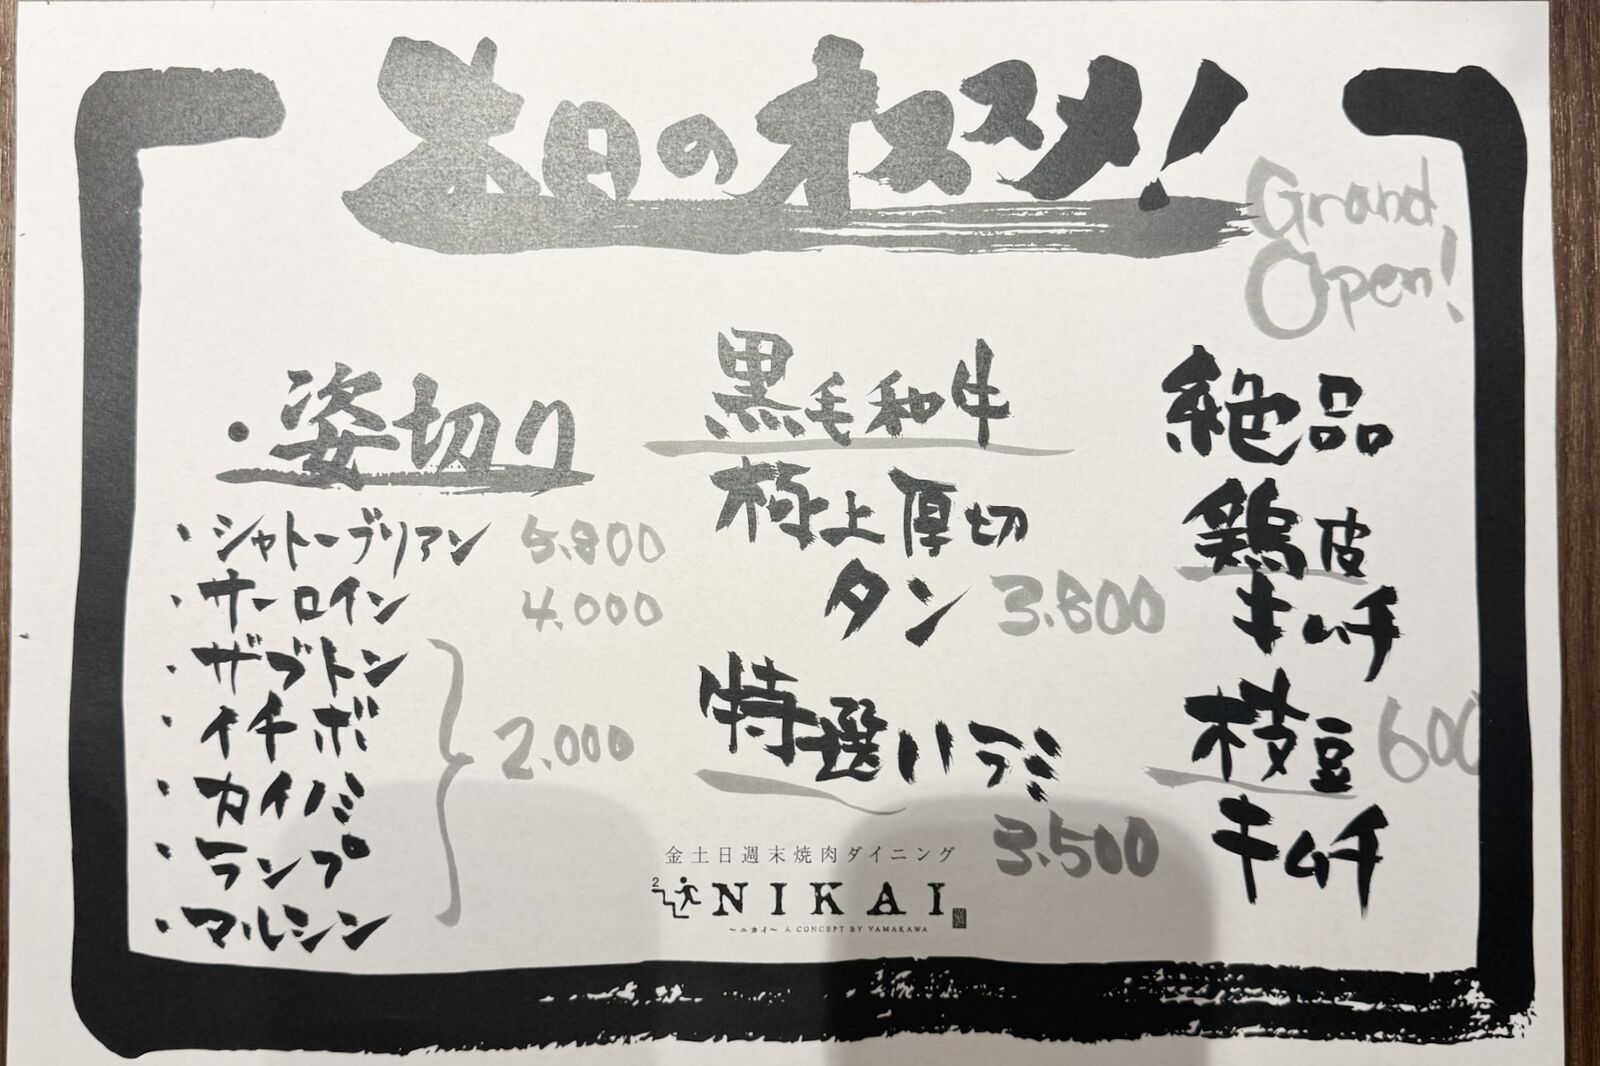 本日のオススメ!
Grand
Open!
・姿切り
・シャトーブリアン 5.800
・サーロイン 4.000
・ザブトン
・イチボ
・カイノミ
・ランプ
・マルシン
2.000
黒毛和牛
極上厚切
タン 3.800
特選ハラミ
3.500
絶品
鶏皮
キムチ
枝豆 600
キムチ
金土日週末焼肉ダイニング
2 NIKAI
～ニカイ～ A CONCEPT BY YAMAKAWA